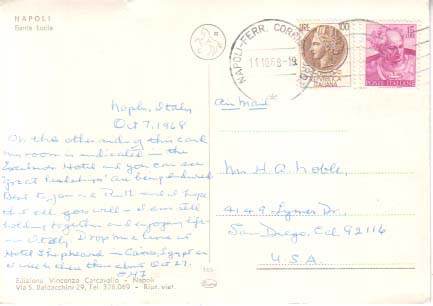 NAPOLI
Santa Lucia
NAPOLI-FERR. CORR
11.10.68-19
LIRE 100
REPUBBLICA
ITALIANA
POSTE ITALIANE
Air Mail
Naples, Italy
Oct 7, 1968
On the other side of this card
my room is indicated in the
Excelsior Hotel and you can see
'great' are being
Best to you and Ruth and I hope
this all well - I am still
holding together and enjoying life
in Italy Drop me a line at
Hotel Shepheard in Cairo, Egypt as
I will be there then about Oct 27.
Mrs H. A. Noble,
4149 Lymer Dr.
San Diego, Cal 92116
U.S.A.
Edizione Vincenzo Carcavallo - Napoli
Via S. Baldacchini 29, Tel. 378.069 - Ripr. viet.